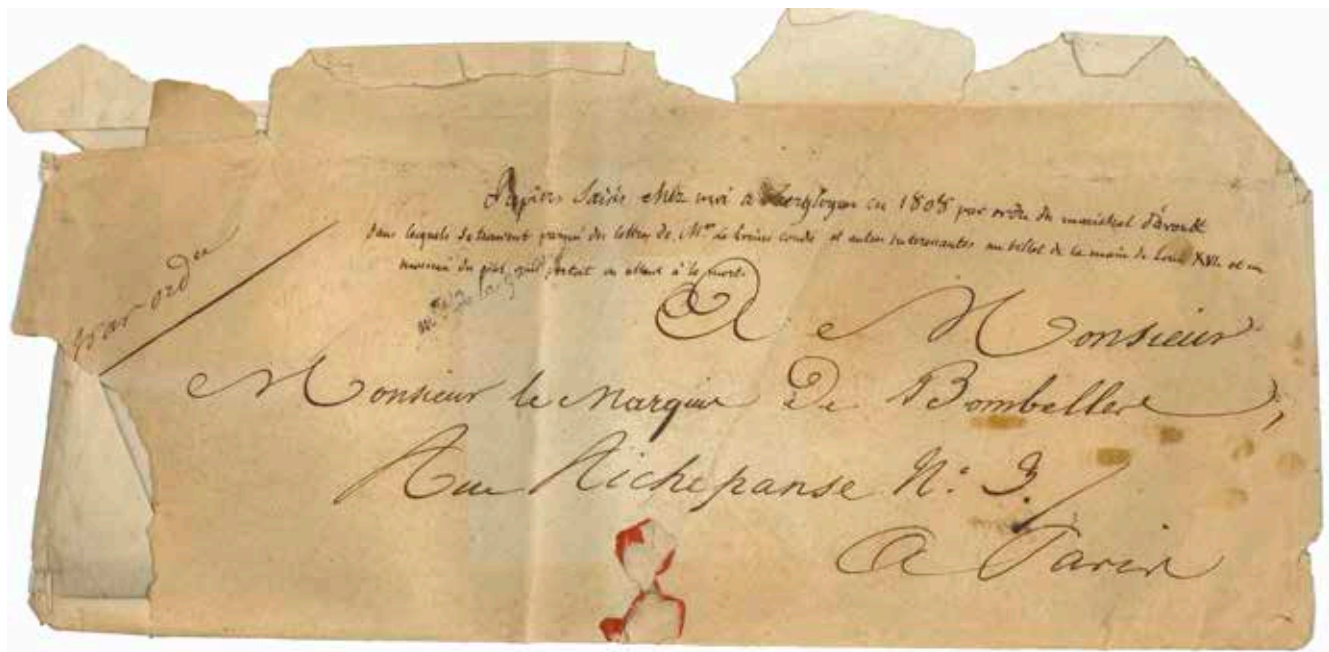 Papiers saisis chez moi a en 1808 par ordre du marechal d'avoult
dans lesquels se trouvent parmi des lettres de Mgr le Prince condé et autres interessantes un billet de la main de Louis XVI. et un
morceau du gilet qu'il portait en allant à la mort.
par ordre
A Monsieur
Monsieur le Marquis De Bombelles,
Rue Richepanse N.º 3.
A Paris